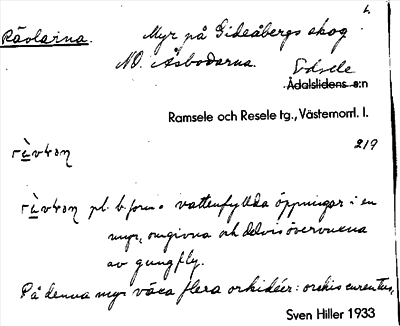 L
Rävlarna. Myr på Gideåbergs skog
NO. Åsbodarna.
Edsele
Ådalslidens s:n
Ramsele och Resele tg., Västernorrl. l.
219
pl. b. form = vattenfyllda öppningar i en
myr, omgivna och delvis övervuxna
av gungfly.
På denna myr växa flera orkidéer: orchis
Sven Hiller 1933